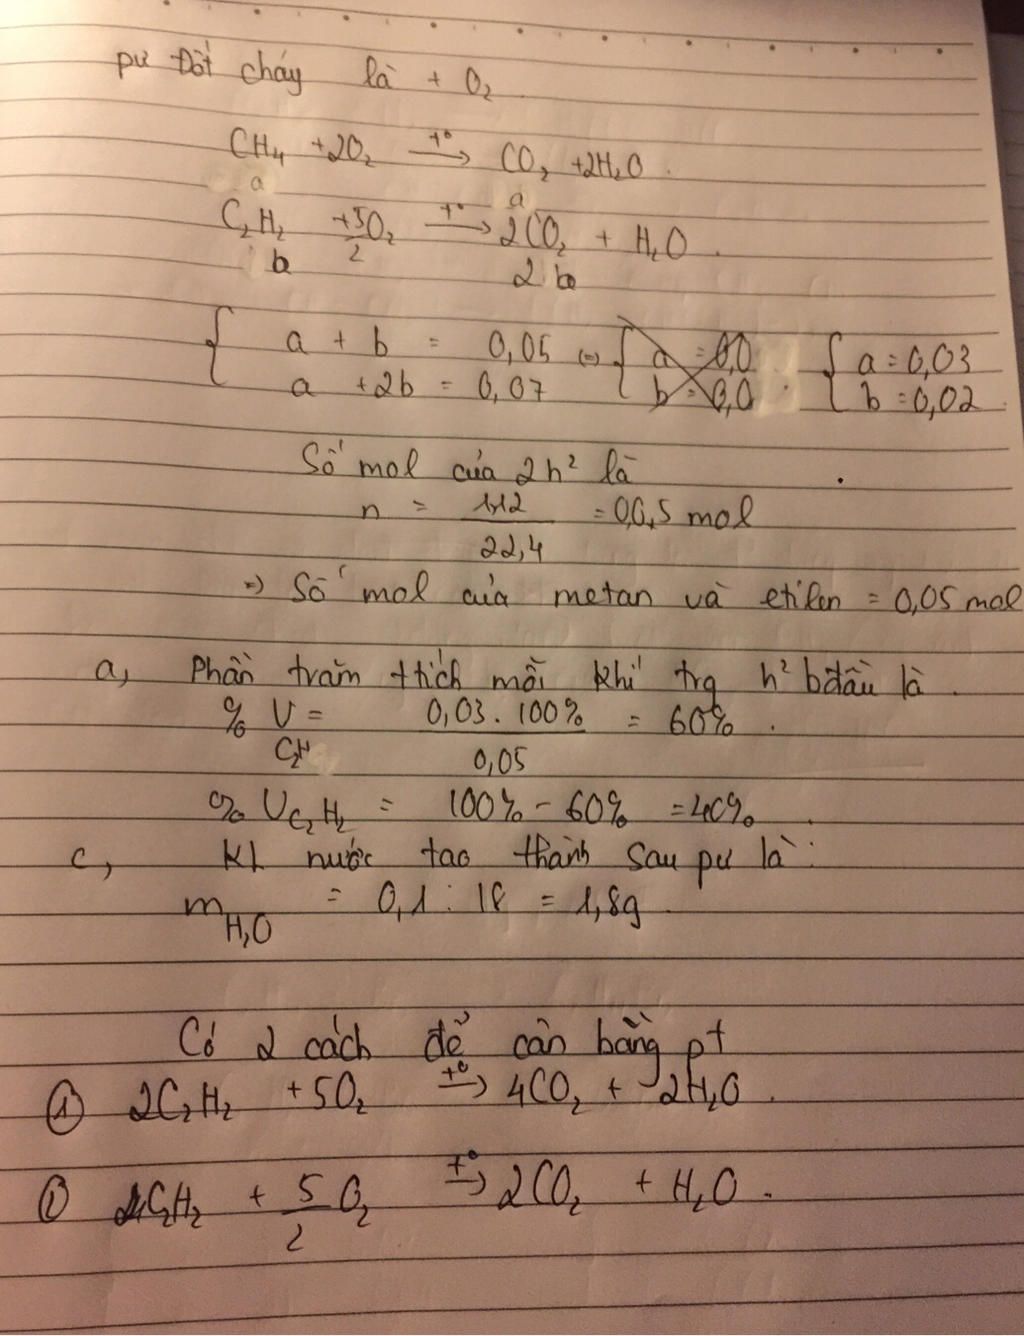 pư Đốt cháy là + O₂
CH₄ + 2O₂ →(t°) CO₂ + 2H₂O.
a a
C₂H₂ + 5/2 O₂ →(t°) 2CO₂ + H₂O.
b 2b
{ a + b = 0,05 (=) { a = 0,0 { a = 0,03
a + 2b = 0,07 b = 0,0 b = 0,02.
Số mol của 2h² là
n = 1,12 / 22,4 = 0,05 mol
=) Số mol của metan và etilen = 0,05 mol
a, Phần trăm thtích mỗi khí trg h² bđầu là.
% V = 0,03 . 100% / 0,05 = 60%.
% V C₂H₂ = 100% - 60% = 40%.
c, KL nước tạo thành sau pư là:
m H₂O = 0,1 : 18 = 1,8g.
Có 2 cách để cân bằng pt
① 2C₂H₂ + 5O₂ →(t°) 4CO₂ + 2H₂O.
① C₂H₂ + 5/2 O₂ →(t°) 2CO₂ + H₂O.